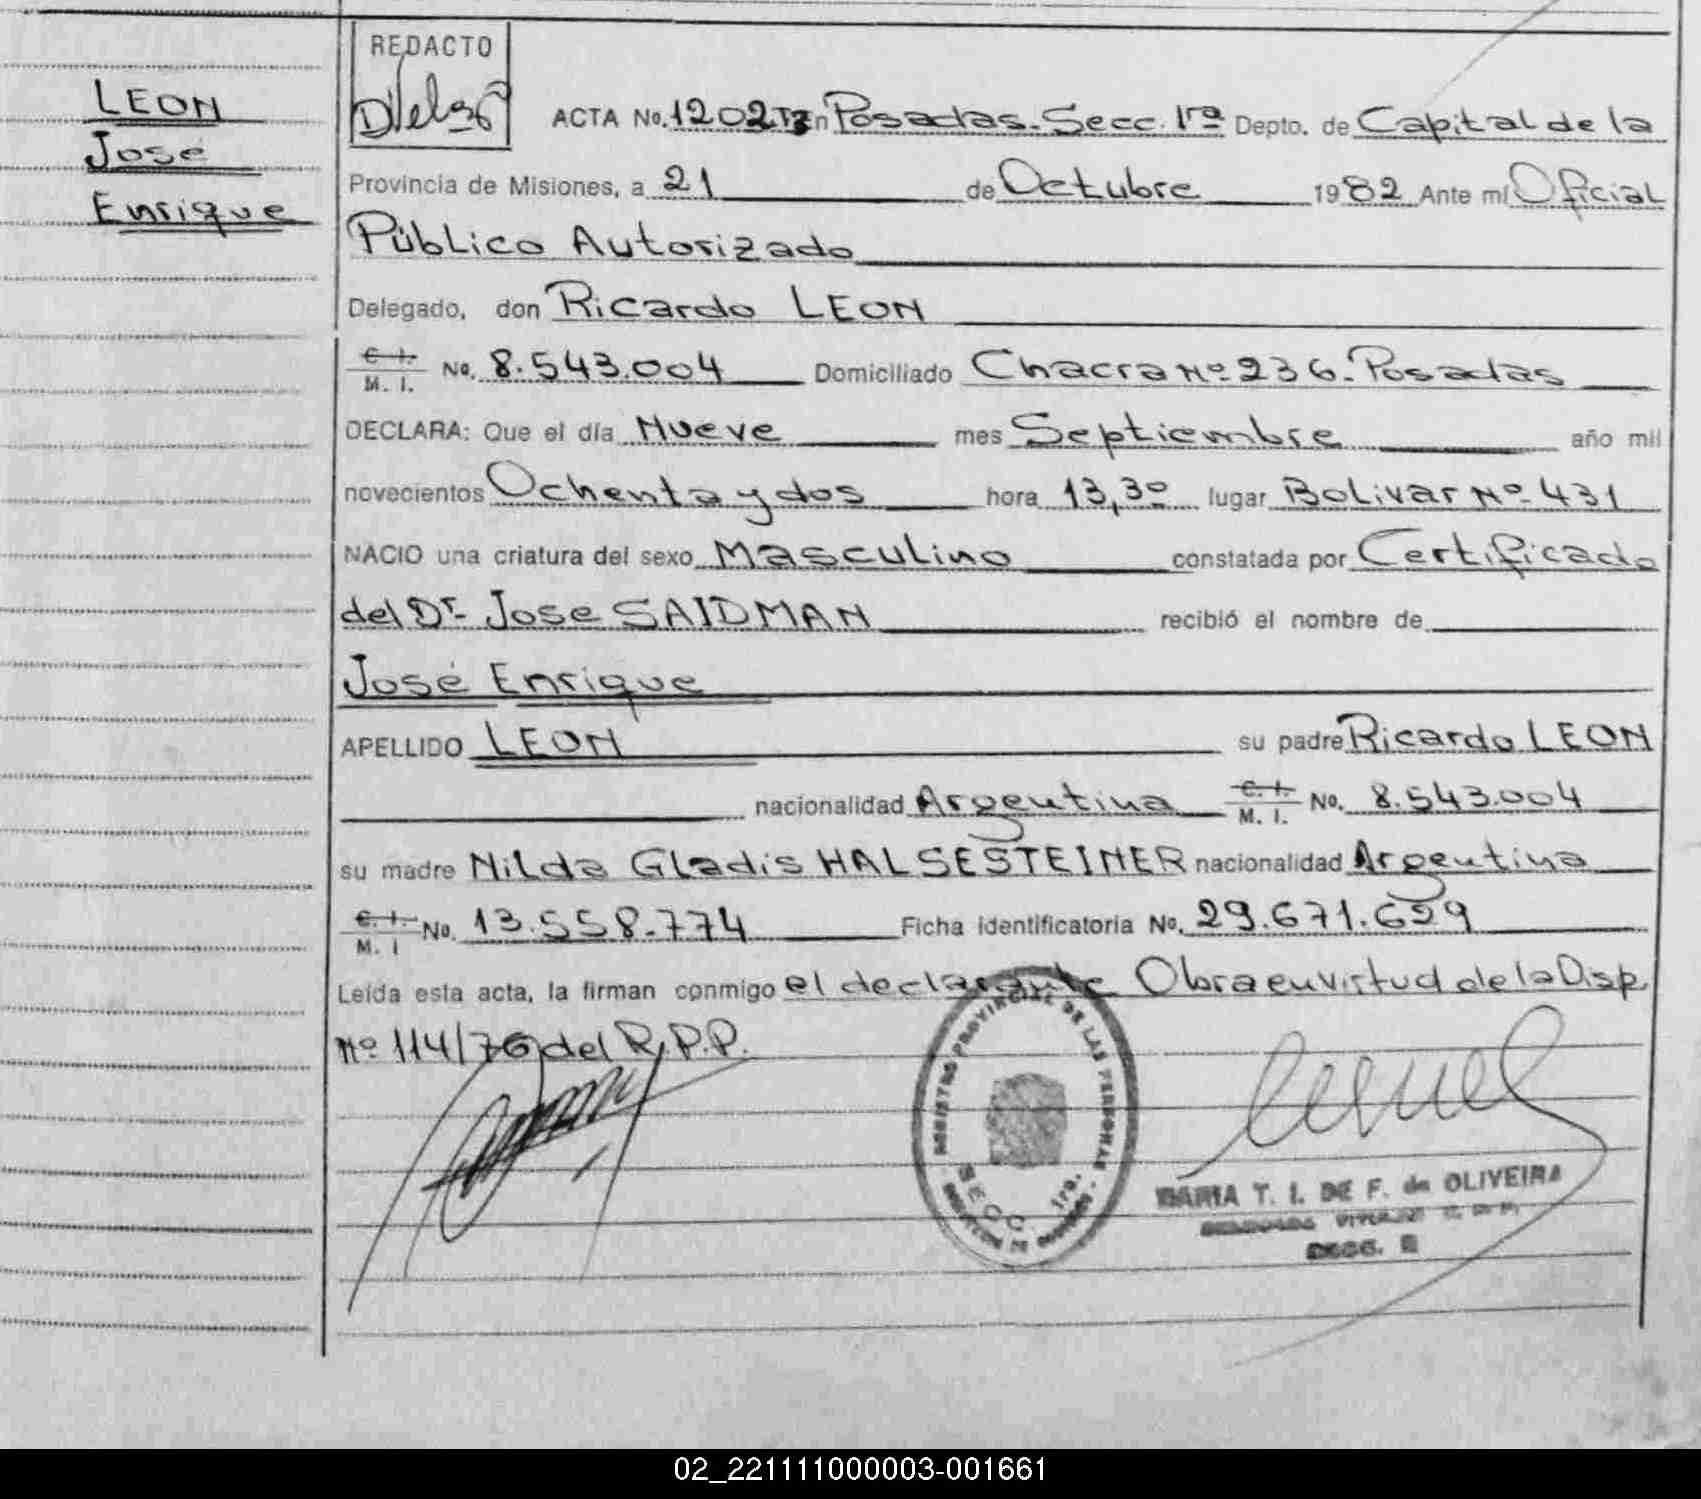 LEON
José
Enrique
REDACTO
ACTA No. 1202 T3 En Posadas. Secc. 1ra Depto. de Capital de la
Provincia de Misiones, a 21 de Octubre 1982 Ante mí Oficial
Público Autorizado
Delegado, don Ricardo LEON
C. I. M. I. No. 8.543.004 Domiciliado Chacra Nº 236. Posadas
DECLARA: Que el día Nueve mes Septiembre año mil
novecientos Ochenta y dos hora 13,30 lugar Bolivar Nº 431
NACIO una criatura del sexo Masculino constatada por Certificado
del Dr. Jose SAIDMAN recibió el nombre de
José Enrique
APELLIDO LEON su padre Ricardo LEON
nacionalidad Argentina C. I. M. I. No. 8.543.004
su madre Nilda Gladis HALSESTEINER nacionalidad Argentina
C. I. M. I No. 13.558.774 Ficha identificatoria No. 29.671.629
Leída esta acta, la firman conmigo el declarante Obra en virtud de la Disp.
Nº 114/76 del R.P.P.
REGISTRO PROVINCIAL DE LAS PERSONAS
SECC. 1ra.
MARIA T. I. DE F. de OLIVEIRA
SECC.
02_221111000003-001661